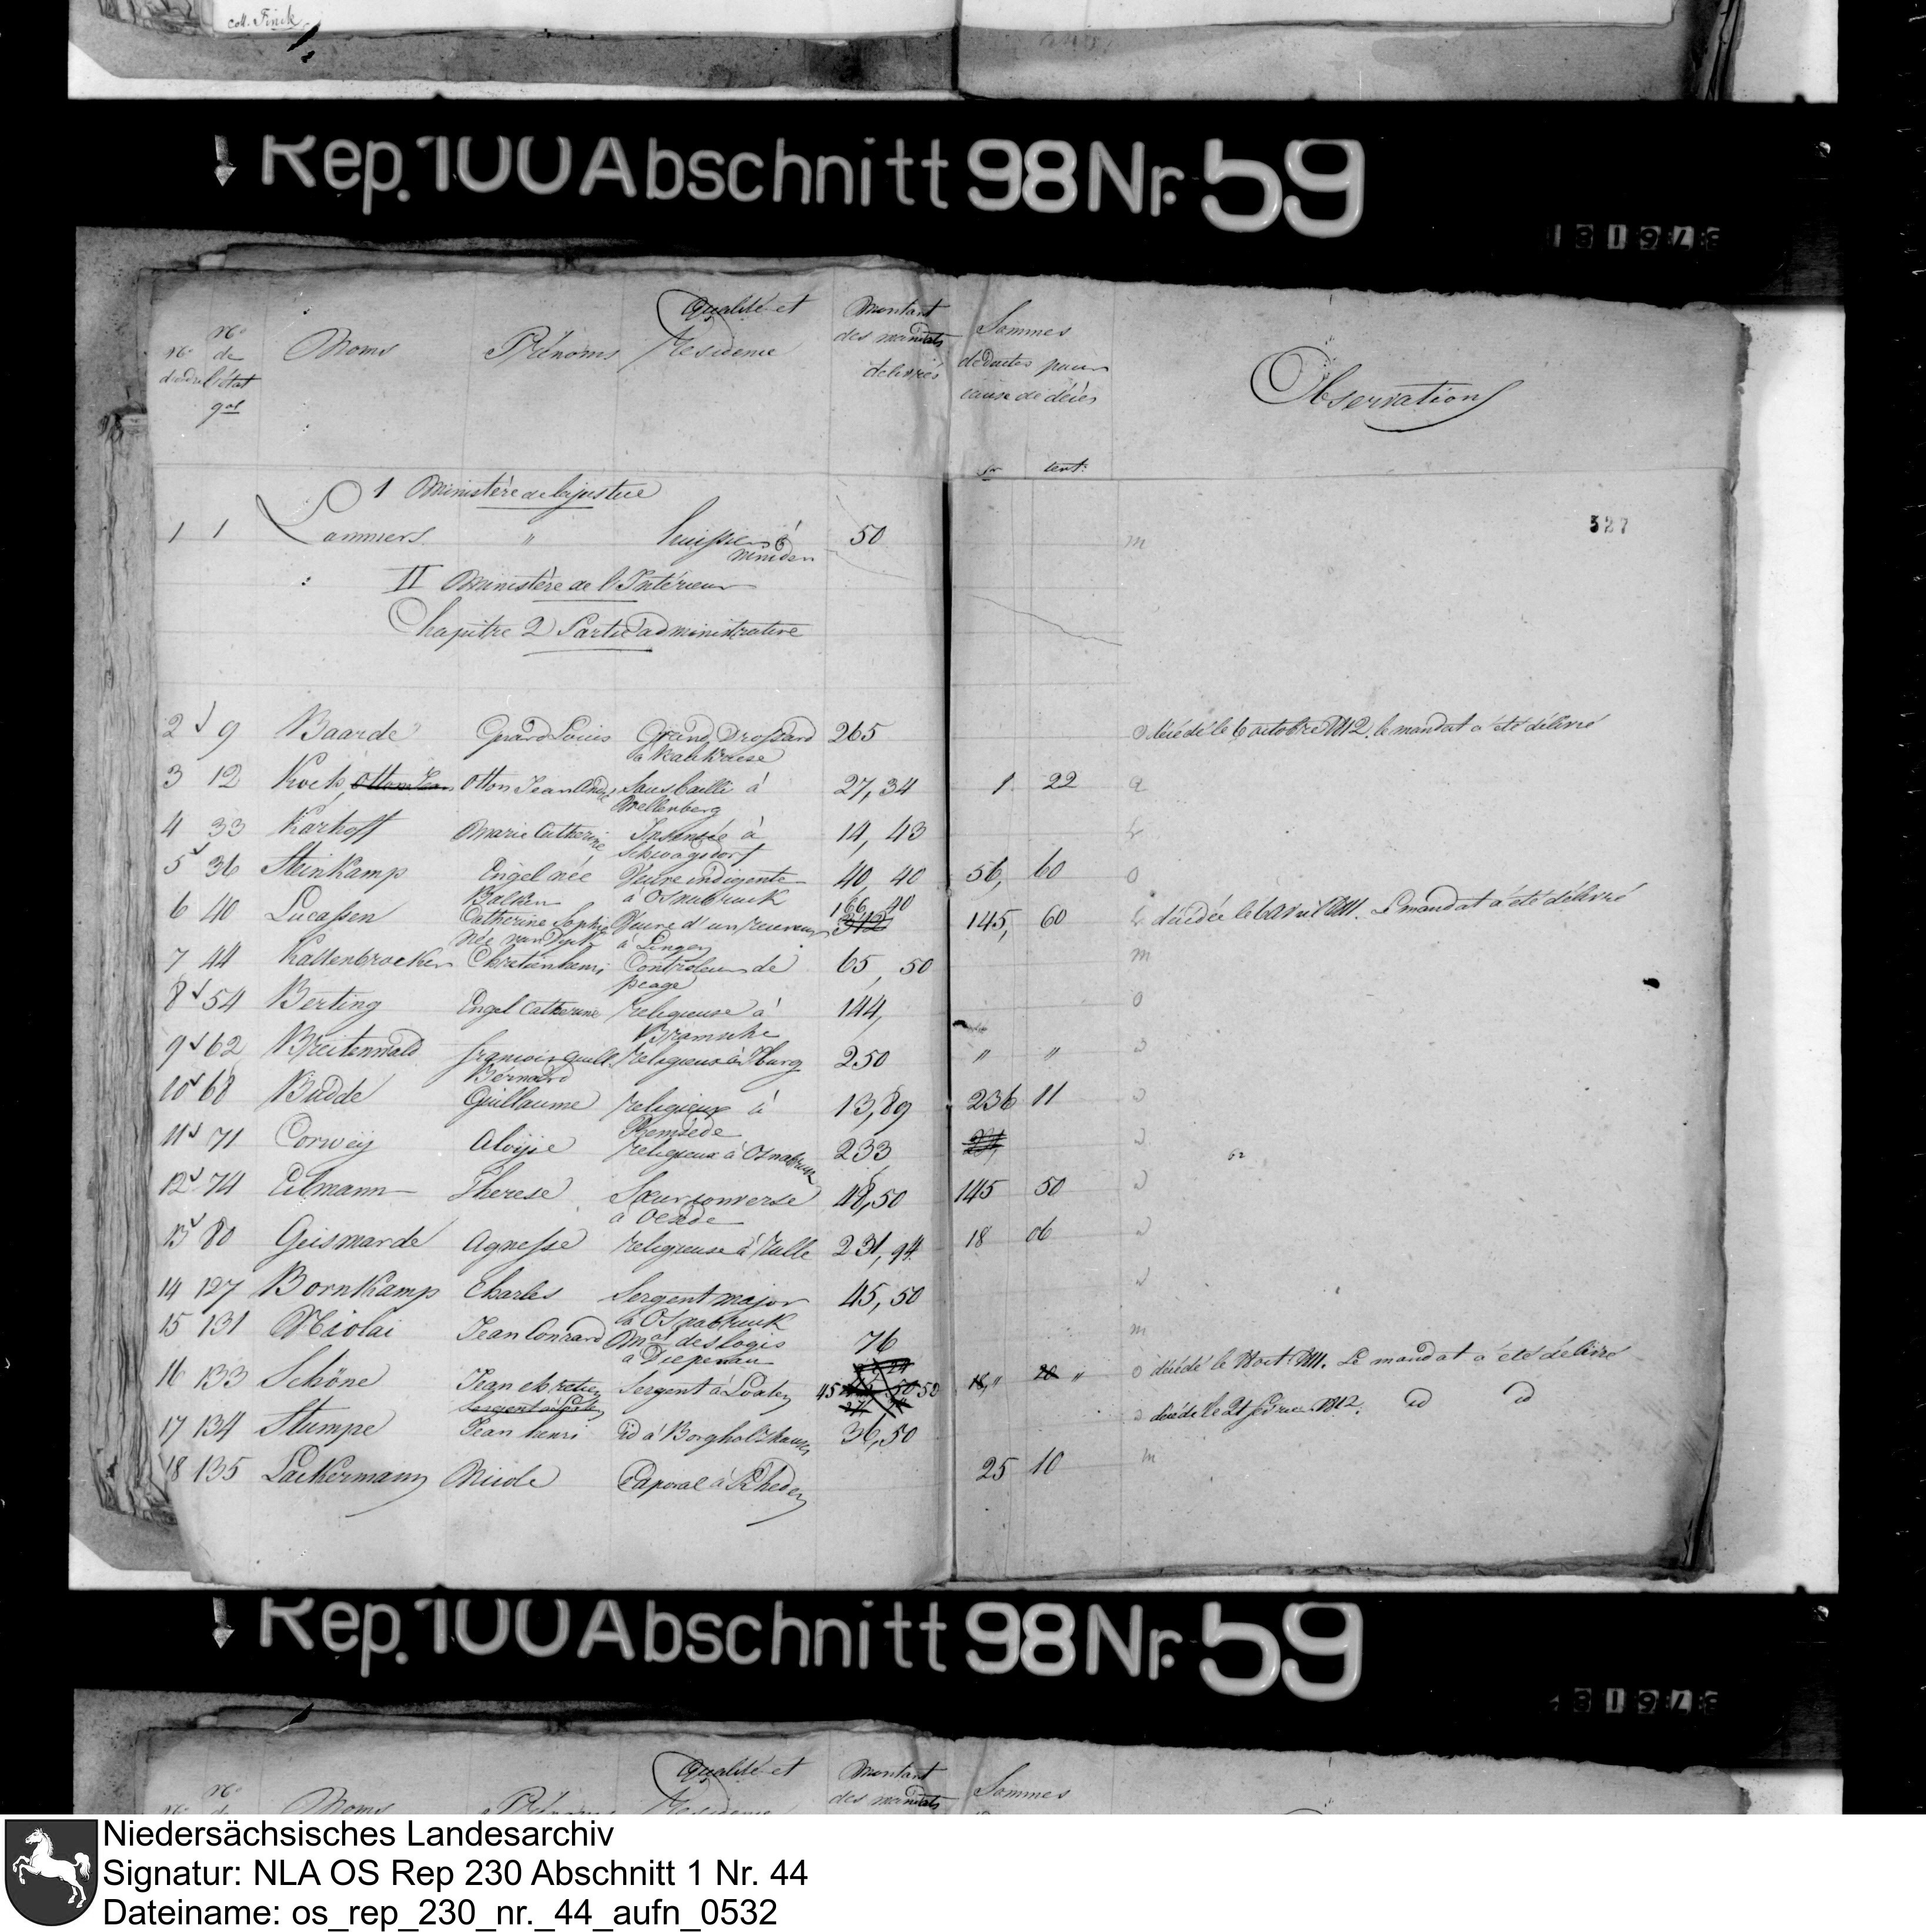 coll. Finck
Rep. 100 Abschnitt 98 Nr. 59
Nos d'ordre
No de l'état gal
Noms
Prénoms
Qualité et résidence
Montant des mandats délivrés
Sommes déduites pour cause de décès
fr cent:
Observations
327
1 Ministère de la justice
1 1 Lammers " huissier à Minden 50 m
II Ministère de l'Intérieur
Chapitre 2 Partie administrative
2 9 Baarde Gerard Louis Grand Drossard à 265 o décédé le 6 octobre 1812. le mandat a été délivré
3 12 Kock, Otton Jean Otton Jean Sousbailli à Wellenberg 27,34 1 22 a
4 33 Karhoff Marie Catherine Insensée à Schwagsdorf 14, 43
5 36 Steinkamp Engel née Balken Veuve indigente à Osnabruck 40, 40 56, 60 o
6 40 Lucassen Catherine Sophie née van Veuve d'un receveur à Lingen 166 40 312 145, 60 décédée le 6 avril 1811. Le mandat a été délivré
7 44 Kaltenbrocker Chretien henri Contrôleur de peage 65, 50 m
8 54 Berting Engel Catherine religieuse à Bramsche 144, o
9 62 Breitenwald francois Guill. Bernard religieux à Iburg 250 " "
10 68 Budde Guillaume religieux à Remsede 13,89 236 11
11 71 Corweÿ Aloÿse religieux à Osnabruck 233
12 74 Eilmann Therese Sœur converse à Oesede 48,50 145 50
13 80 Geismarde Agnesse religieuse à Rulle 231,94 18 06
14 127 Bornkamp Charles Sergent major à Osnabruck 45,50
15 131 Nicolai Jean Conrard Mal des logis à Diepenau 76 m
16 133 Schöne Jean chretien Sergent à 45 50 18," 20 " o décédé le 1811. Le mandat a été délivré
17 134 Stumpe Jean henri id à Borgholzhausen 36,50 décédé le 21 février 1812. id id
18 135 Lackermann Caporal à Rheden 25 10 m
Rep. 100 Abschnitt 98 Nr. 59
No
Noms
Prénoms
Qualité et résidence
Montant des mandats
Sommes
Niedersächsisches Landesarchiv
Signatur: NLA OS Rep 230 Abschnitt 1 Nr. 44
Dateiname: os_rep_230_nr._44_aufn_0532